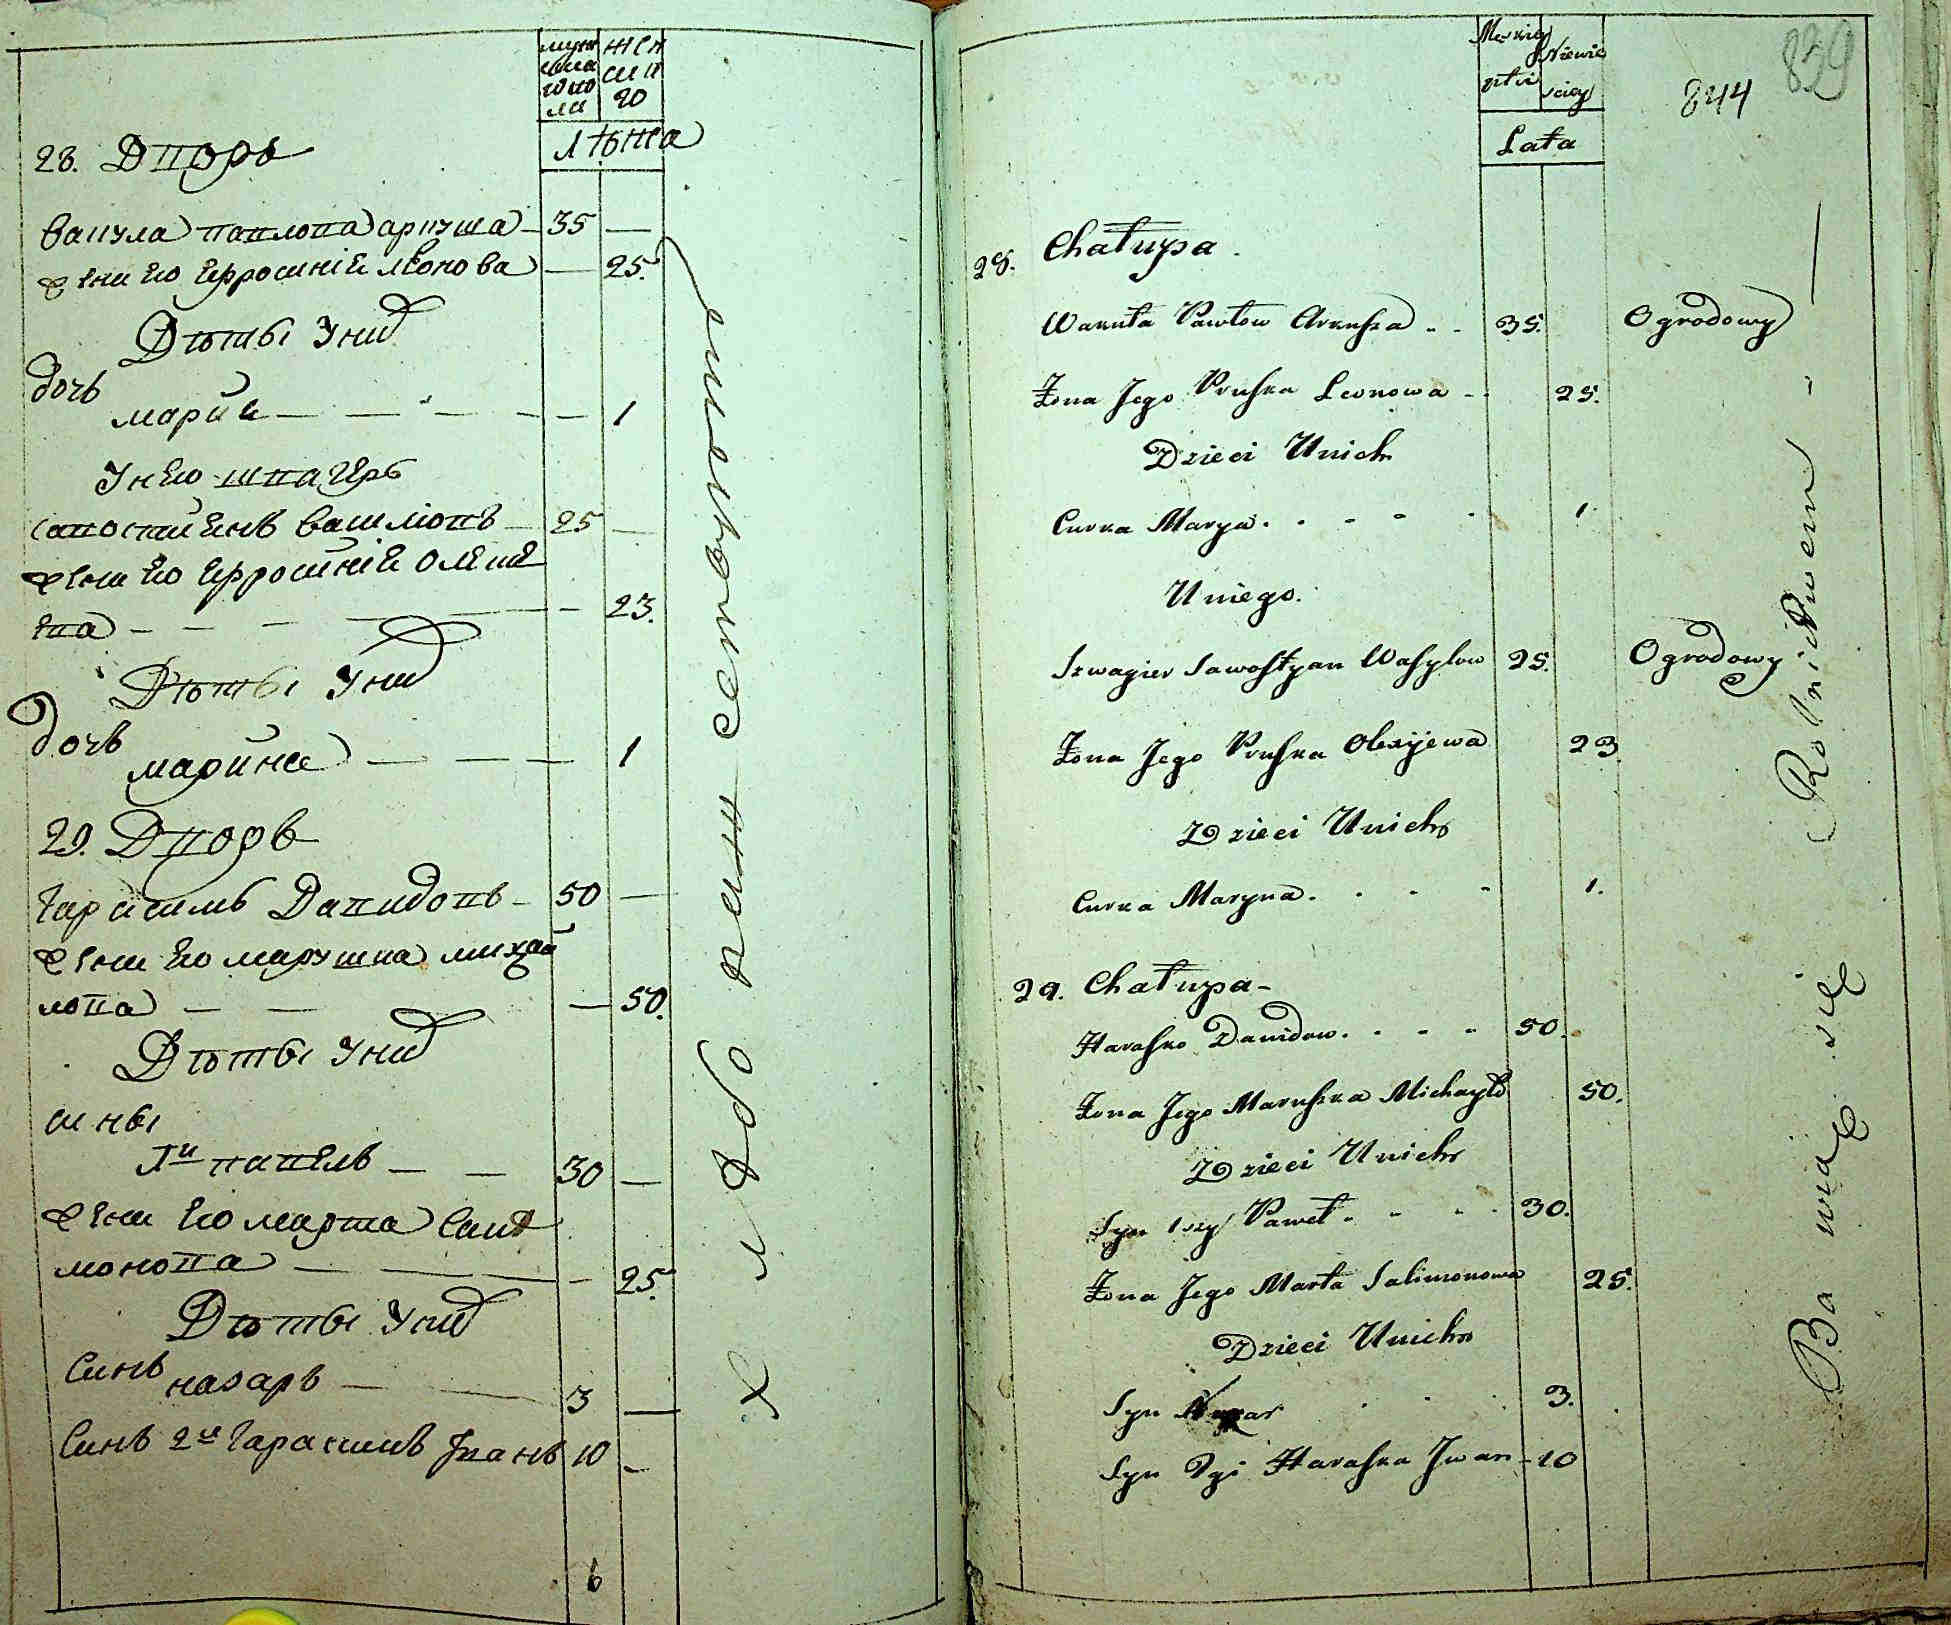 28. Дворъ
Вакула Павлова Аркуша 35 —
жена Ево Ефросиніе Леонова — 25.
Дѣты Унид
дочь
Марие — — — — 1
У Нево шваґеръ
Савостиянъ Василювъ — 25 —
жена Ево Ефросиние Олеще
ева — — — — 23.
Дѣты Унид
дочъ
Марина — — — 1
29. Дворъ
Гарасимъ Давидовъ — 50 —
жена Ево Марушка Михай
лова — — — 50.
Дѣты Унид
сины
1й Павелъ — — 30 —
жена Ево Марта Сали
монова — — — 25.
Дѣты Унид
Синъ
Назаръ — — 3 —
Синъ 2й Гарасимъ Іванъ 10 —
6
хлѣбопашествомъ
Męzkiey płci
Niewieściey
Lata
844
839
28. Chałupa
Wakuła Pawłow Arkusza 35. Ogrodowy —
Żona Jego Pruśka Leonowa 25.
Dzieci Unich
Curka Marya 1.
Uniego.
Szwagier Sawostyan Wasylow 25. Ogrodowy
Żona Jego Pruśka Olexijewa 23.
Dzieci Unich
Curka Maryna 1.
29. Chałupa
Harasko Dawidow 50.
Żona Jego Maruszka Michayło 50.
Dzieci Unich
Syn 1szy Paweł 30.
Żona Jego Marta Salimonowa 25.
Dzieci Unich
Syn Nazar 3.
Syn 2gi Haraśka Jwan 10
Bawią się Rolnictwem